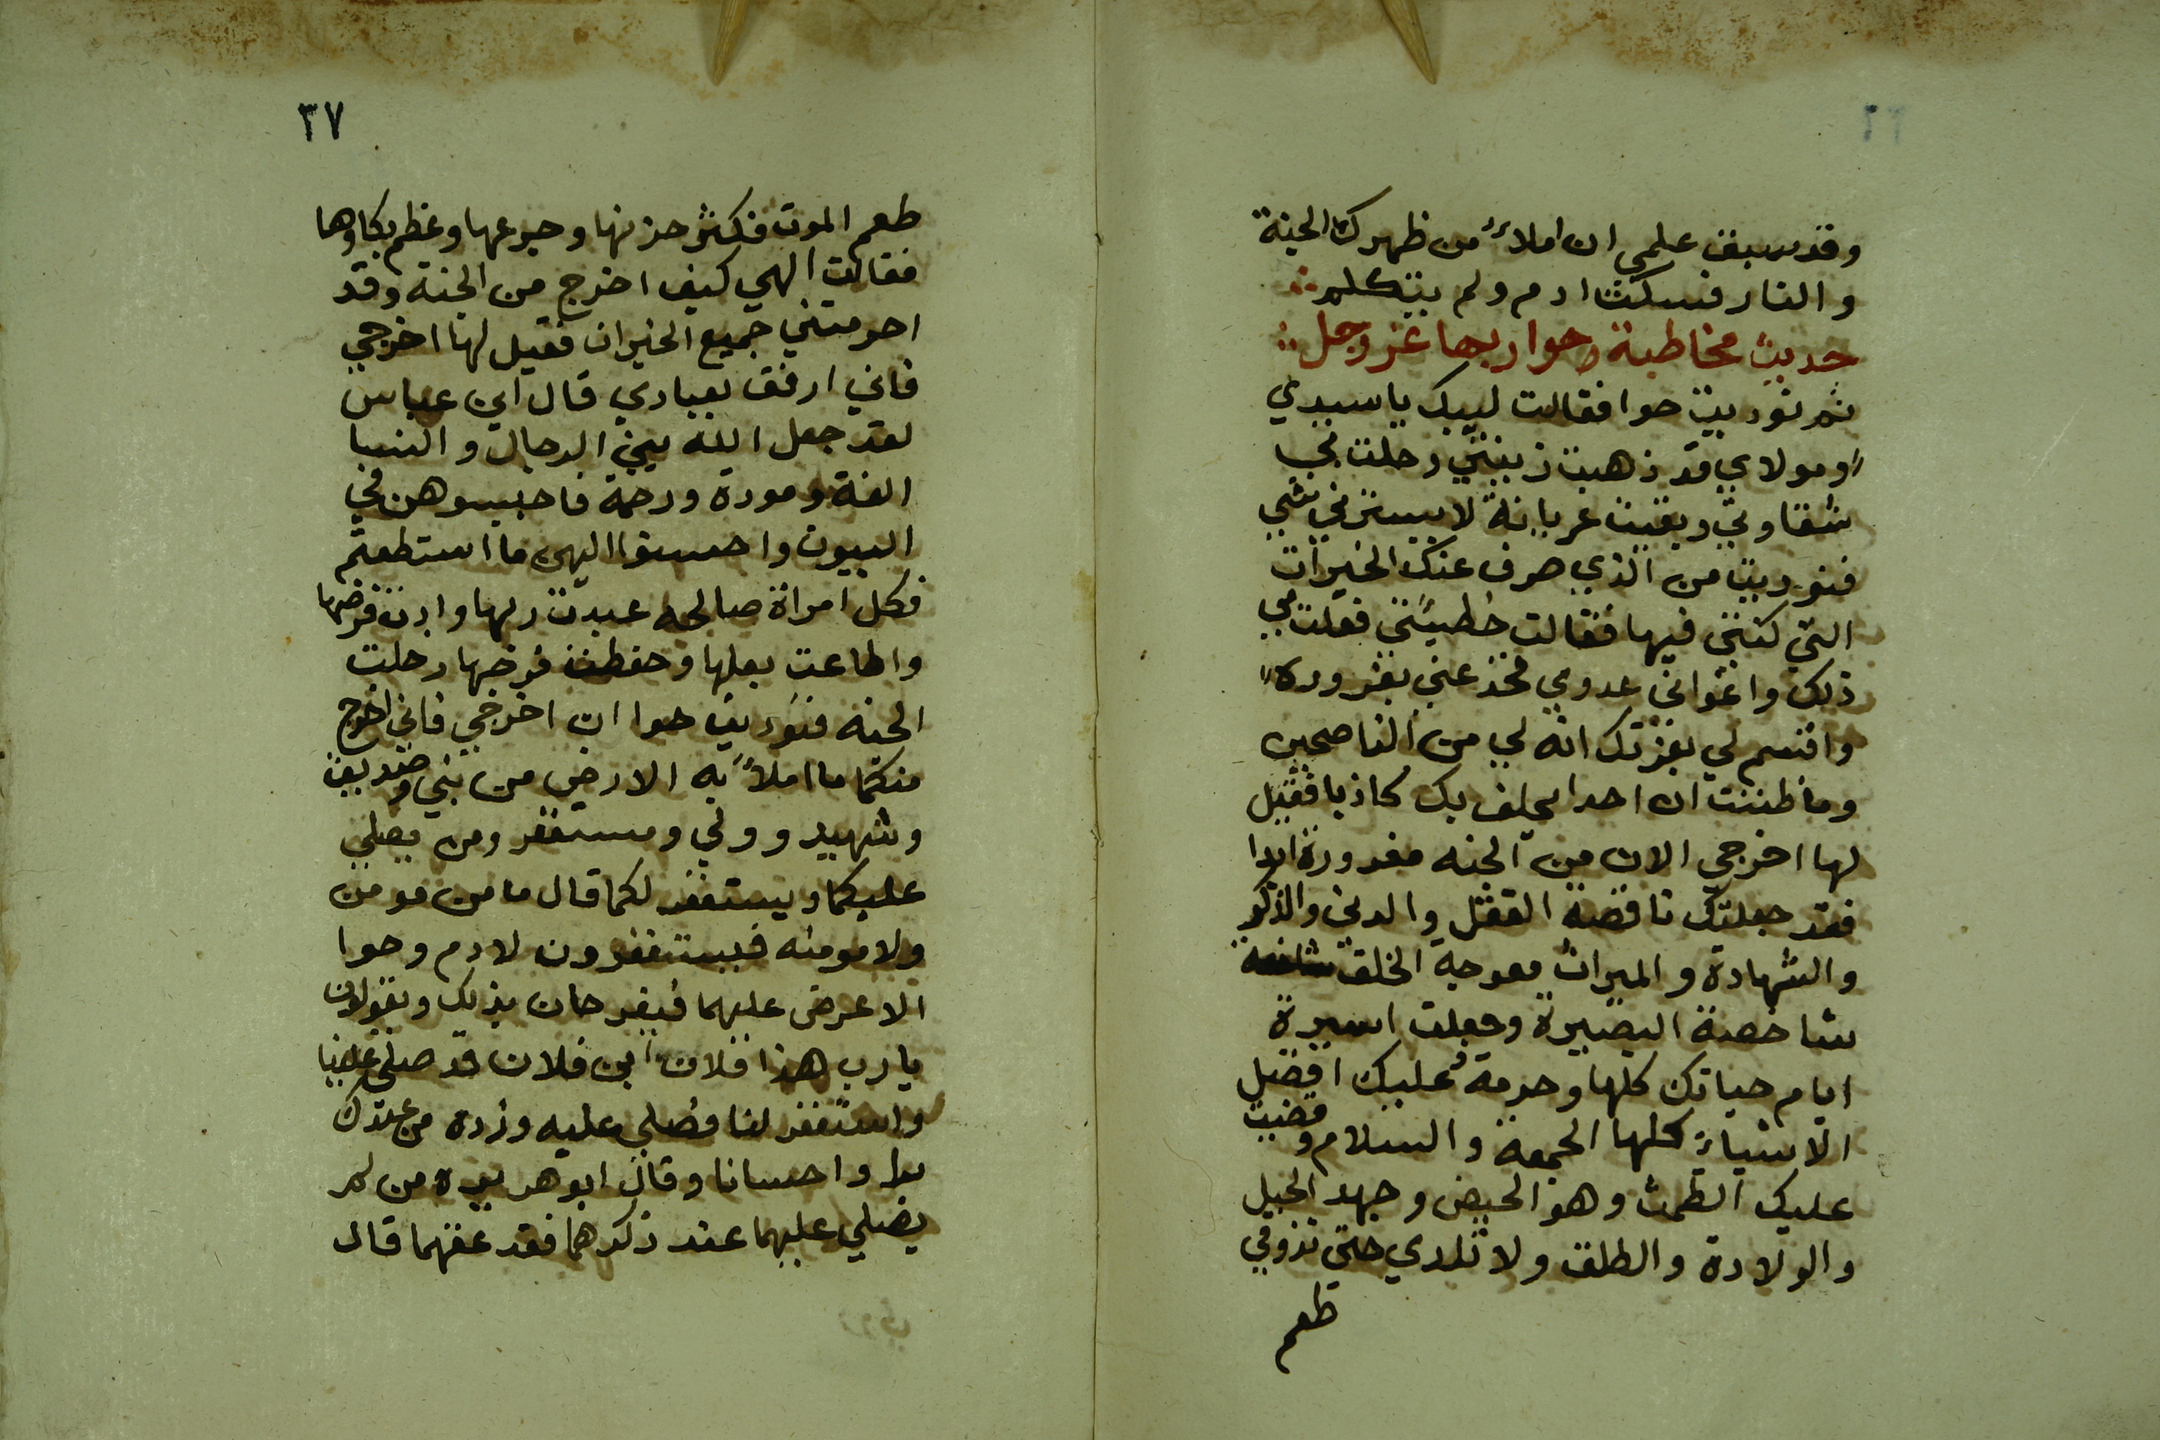 وقد سبق علمي ان املاء من ظهرك الجنة
والنار فسكت ادم ولم يتكلم
حديث مخاطبة حوا ربها عز وجل
ثم نوديت حوا فقالت لبيك يا سيدي
ومولاي قد ذهبت زينتي وحلت بي
شقاوتي وبقيت عريانة لا يسترني شي
فنوديت من الذي صرف عنك الخيرات
التي كنتي فيها فقالت خطيئتي فعلت بي
ذلك واغواني عدوي فخذعني بغروره
واقسم لي بعزتك انه لي من الناصحين
وما ظننت ان احدا يحلف بك كاذبا فقيل
لها اخرجي الان من الجنه مغدورة ابدا
فقد جعلتك ناقصة العقل والدين والذكر
والشهادة والميراث معوجة الخلق
شاخصة البصيرة وجعلت اسيرة
ايام حياتك كلها وحرمة عليك افضل
الاشياء كلها الجمعة والسلام وقضيت
عليك الطمث وهو الحيض وجهد الحبل
والولادة والطلق ولا تلدي حتى تذوقي
طعم
٣٧
طعم الموت فكثر حزنها وجزعها وعظم بكاوها
فقالت الهي كيف اخرج من الجنة وقد
احرمتني جميع الخيرات فقيل لها اخرجي
فاني ارفق بعبادي قال ابن عباس
لقد جعل الله بين الرجال والنسا
الفة ومودة ورحمة فاحبسوهن في
البيوت واحسنوا اليهن ما استطعتم
فكل امراة صالحه عبدت ربها وادت فرضها
واطاعت بعلها وحفظت فرجها دخلت
الجنه فنوديت حوا ان اخرجي فاني اخرج
منكما ما املاء به الارض من نبي وصديق
وشهيد وولي ومستغفر ومن يصلي
عليكما ويستغفر لكما قال ما من مومن
ولا مومنه فيستغفرون لادم وحوا
الا عرض عليهما فيفرحان بذلك ويقولان
يارب هذا فلان ابن فلان قد صلى علينا
واستغفر لنا فصلي عليه وزده من عندك
برا واحسانا وقال ابو هريره من لم
يصلي عليهما عند ذكرهما فقد عقهما قال